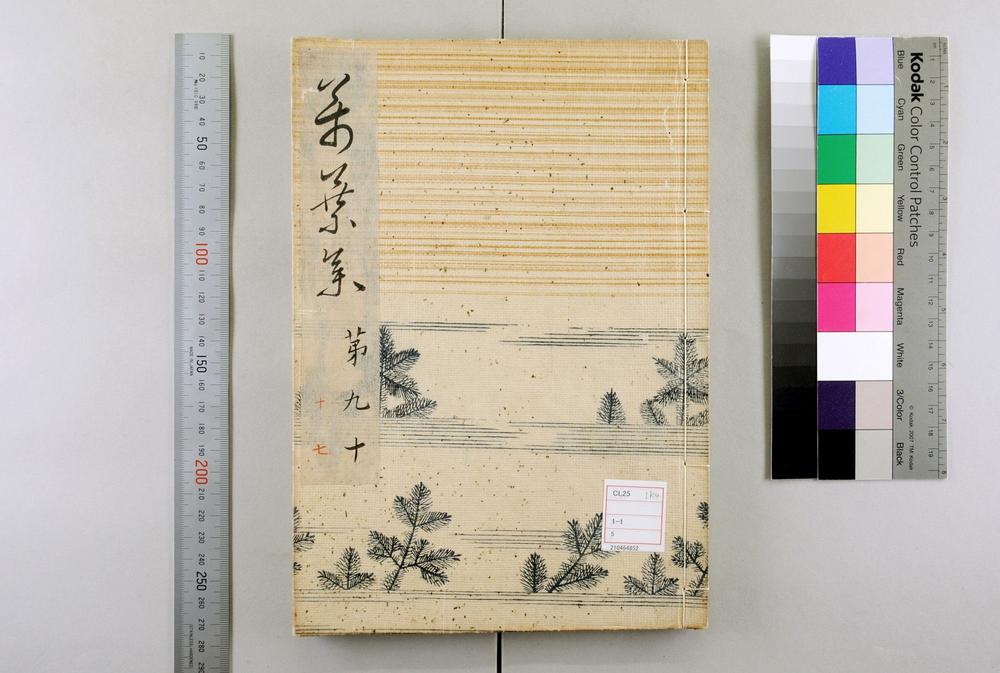 萬葉集
第九
十
十
七
CL25
1-1
5
210464852
Kodak Color Control Patches
Blue
Cyan
Green
Yellow
Red
Magenta
White
3/Color
Black
© Kodak, 2007 TM: Kodak
10
20
30
40
50
60
70
80
90
100
110
120
130
140
150
160
170
180
190
200
210
220
230
240
250
260
270
280
290
MADE IN JAPAN
1
2
3
4
5
6
7
8
9
10
11
12
13
14
15
16
17
18
19